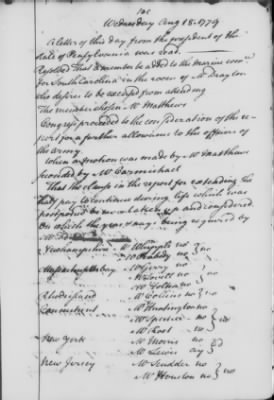 Wednesday Aug 18. 1779
A letter of this day from the president of the
state of Pensylvania was read.
Resolved That a member be added to the marine comee
for South Carolina in the room of Mr Drayton
who desires to be excused from attending
The member chosen Mr Matthews
Congress proceeded to the consideration of the re-
port for a farther allowance to the officers of
the army
When a motion was made by Mr Matthews
seconded by Mr Carmichael
That the clause in the report for extending the
half pay to continue during life which was
postponed be now taken up and considered
On which the yeas & nays being required by
Mr
Newhampshire Mr Whipple no } no
Mr Peabody no
Massachusetts bay Mr Gerry no
Mr Lovell no } no
Mr Holten no
Rhode island Mr Collins no } no
Connecticut Mr Huntington no
Mr Spencer no } no
Mr Root no
New York Mr Morris no
Mr Lewis ay } d
New Jersey Mr Scudder no
Mr Houston no } no